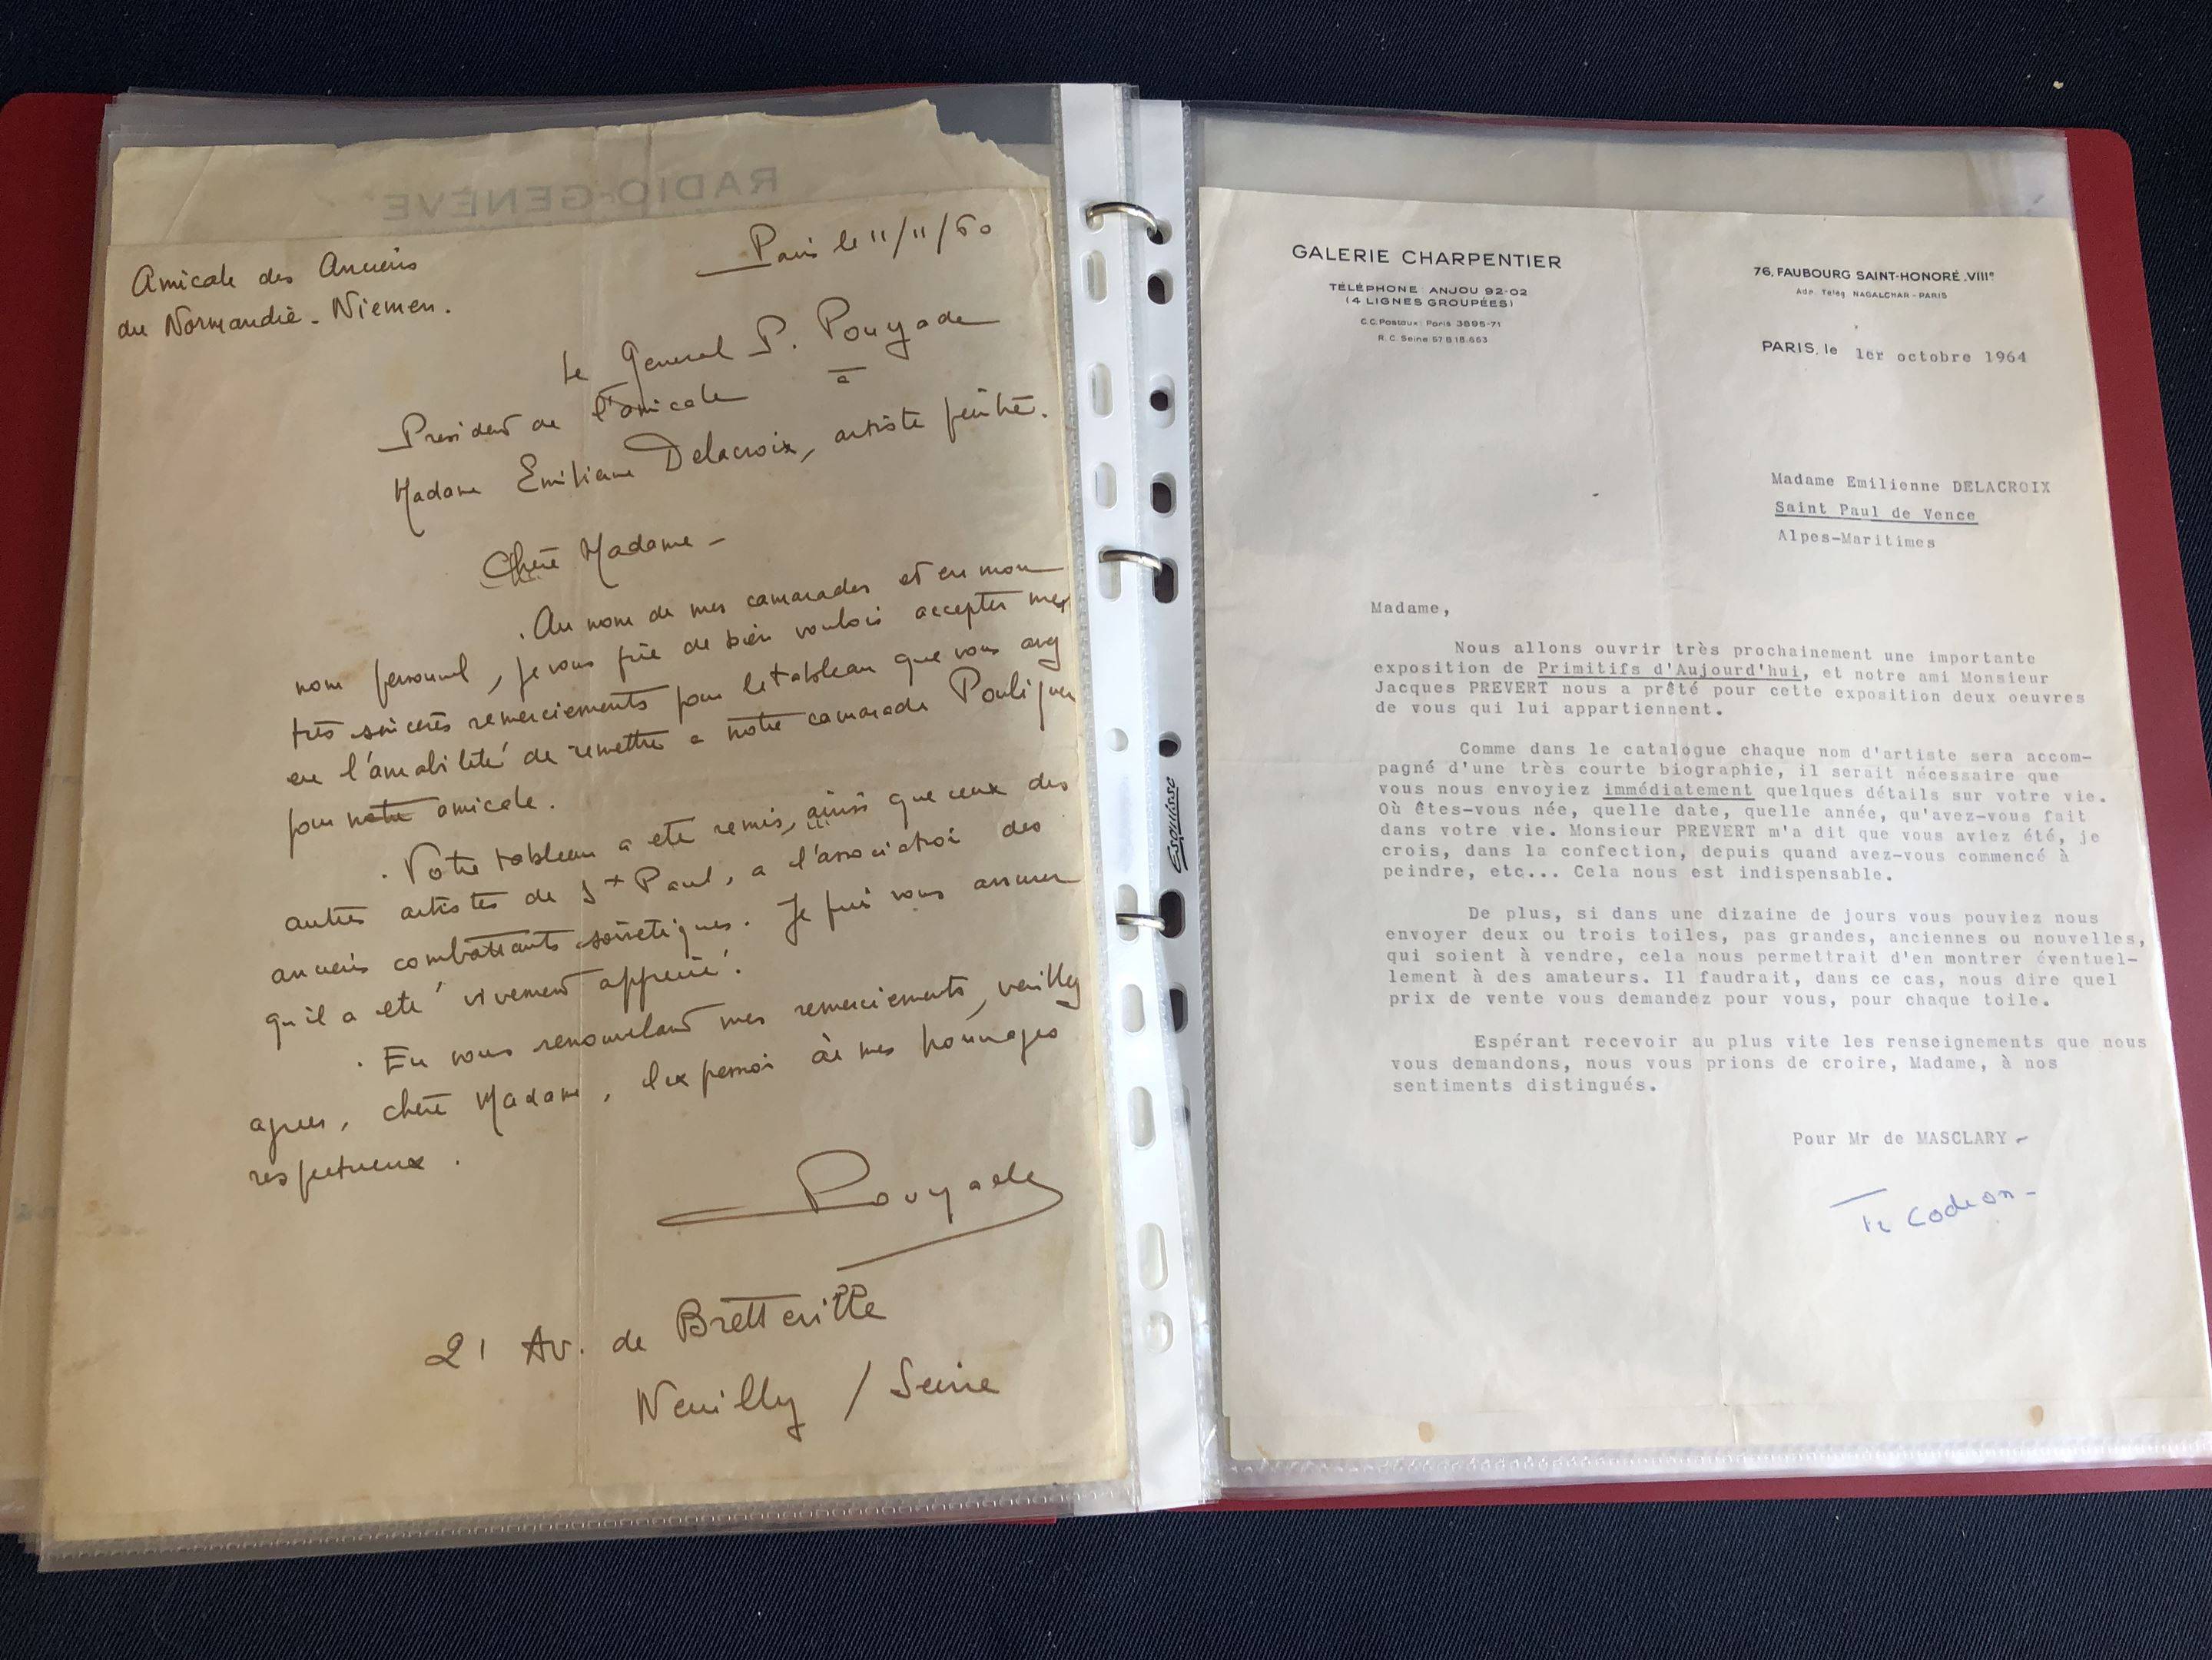 RADIO-GENÈVE
Amicale des Anciens
du Normandie-Niemen.
Paris le 11/11/60
Le General P. Pouyade
Président de l'amicale à
Madame Emilienne Delacroix, artiste peintre.
Chère Madame -
. Au nom de mes camarades et en mon
nom personnel, je vous prie de bien vouloir accepter mes
très sincères remerciements pour le tableau que vous avez
eu l'amabilité de remettre a notre camarade
pour notre amicale.
. Votre tableau a ete remis, ainsi que ceux des
autres artistes de St Paul, a l'association des
anciens combattants soviétiques. Je puis vous assurer
qu'il a eté vivement apprécié.
. En vous renouvelant mes remerciements, veuillez
agreer, chère Madame, l'expression de mes hommages
respectueux.
Pouyade
21 Av. de Bretteville
Neuilly / Seine
Esquisse
GALERIE CHARPENTIER
TÉLÉPHONE : ANJOU 92-02
(4 LIGNES GROUPÉES)
C.C. Postaux : Paris 3895-71
R.C. Seine 57 B 18.663
76, FAUBOURG SAINT-HONORÉ. VIIIe
Adr. Télég. NAGALCHAR - PARIS
PARIS, le 1er octobre 1964
Madame Emilienne DELACROIX
Saint Paul de Vence
Alpes-Maritimes
Madame,
Nous allons ouvrir très prochainement une importante
exposition de Primitifs d'Aujourd'hui, et notre ami Monsieur
Jacques PREVERT nous a prêté pour cette exposition deux oeuvres
de vous qui lui appartiennent.
Comme dans le catalogue chaque nom d'artiste sera accom-
pagné d'une très courte biographie, il serait nécessaire que
vous nous envoyiez immédiatement quelques détails sur votre vie.
Où êtes-vous née, quelle date, quelle année, qu'avez-vous fait
dans votre vie. Monsieur PREVERT m'a dit que vous aviez été, je
crois, dans la confection, depuis quand avez-vous commencé à
peindre, etc... Cela nous est indispensable.
De plus, si dans une dizaine de jours vous pouviez nous
envoyer deux ou trois toiles, pas grandes, anciennes ou nouvelles,
qui soient à vendre, cela nous permettrait d'en montrer éventuel-
lement à des amateurs. Il faudrait, dans ce cas, nous dire quel
prix de vente vous demandez pour vous, pour chaque toile.
Espérant recevoir au plus vite les renseignements que nous
vous demandons, nous vous prions de croire, Madame, à nos
sentiments distingués.
Pour Mr de MASCLARY -